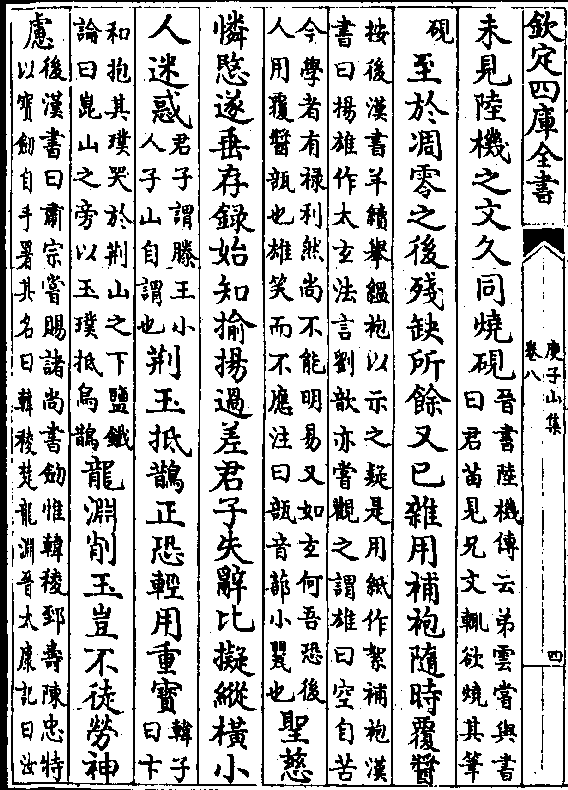 欽定四庫全書
庾子山集
卷八
四
未見陸機之文久同燒硯
晉書陸機傳云弟雲嘗與書
曰君苗見兄文輒欲燒其筆
硯
至於凋零之後殘缺所餘又已雜用補袍隨時覆醬
按後漢書羊續舉縕袍以示之疑是用紙作絮補袍漢
書曰揚雄作太玄法言劉歆亦嘗觀之謂雄曰空自苦
今學者有祿利然尚不能明易又如玄何吾恐後
人用覆醬瓿也雄笑而不應注曰瓿音蔀小甖也
聖慈
憐愍遂垂存録始知揄揚過差君子失辭比擬縱橫小
人迷惑
君子謂滕王小
人子山自謂也
荆玉抵鵲正恐輕用重寶
韓子
曰卞
和抱其璞哭於荆山之下鹽鐵
論曰崑山之旁以玉璞抵烏鵲
龍淵削玉豈不徒勞神
慮
後漢書曰肅宗嘗賜諸尚書劒惟韓稜郅壽陳忠特
以寶劒自手署其名曰韓稜楚龍淵晉太康記曰汝